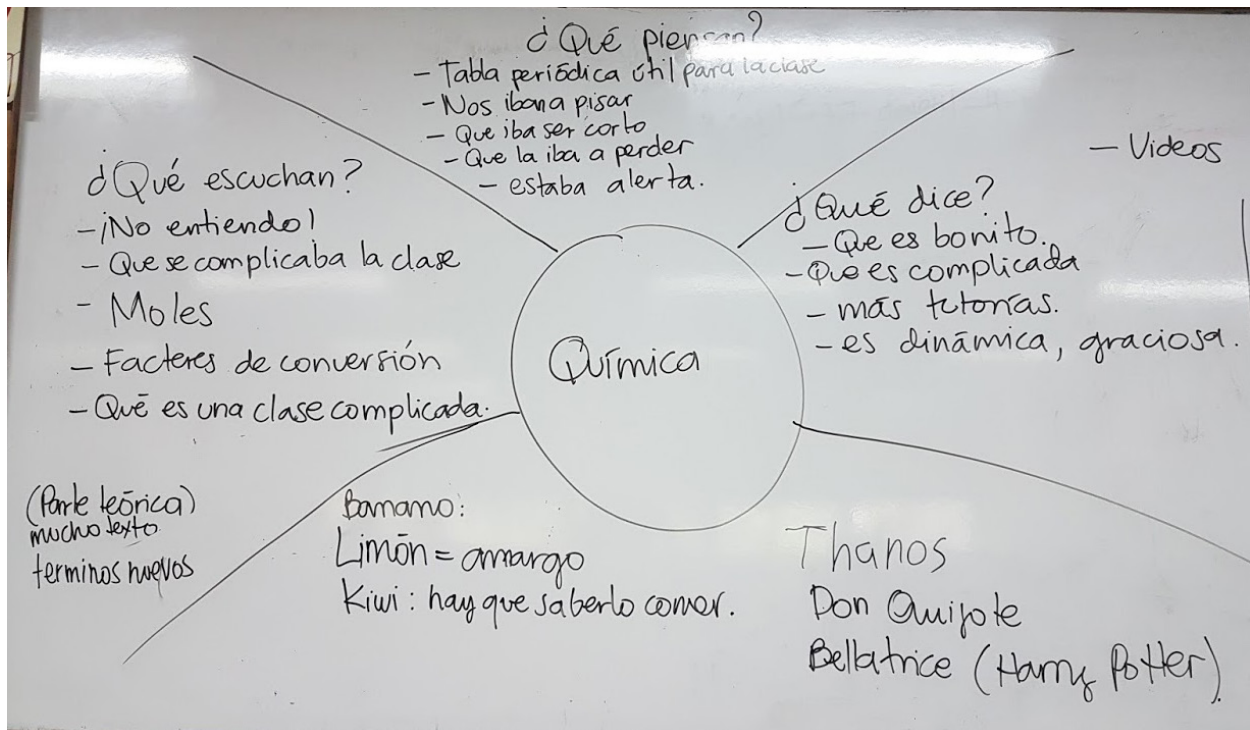 ¿Qué piensan?
- Tabla periódica útil para la clase
- Nos iban a pisar
- Que iba ser corto
- Que la iba a perder
- estaba alerta.
¿Qué escuchan?
- ¡No entiendo!
- Que se complicaba la clase
- Moles
- Factores de conversión
- Qué es una clase complicada.
- Videos
¿Qué dice?
- Que es bonito.
- Que es complicada
- más tutorías.
- es dinámica, graciosa.
Química
(Parte teórica)
mucho texto.
terminos nuevos
Limón = amargo
Kiwi : hay que saberlo comer.
Thanos
Don Quijote
Bellatrice (Harry Potter).